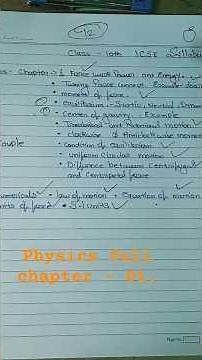 12
Class - 10th ICSE Syllabus
Chapter - 1 Force work Power and Energy
• Turning Force concept Example door
• moment of force
Equilibrium - Static,
• Center of gravity Example
• Translational and Rotational motion
• clockwise & Anticlockwise moment
Couple • Condition of Equilibrium
uniform Circular motion
• Difference between Centrifugal
and Centripetal force
Numericals • Law of motion • Equation of motion
Units of force • S.I Units
Physics full
chapter - 01.